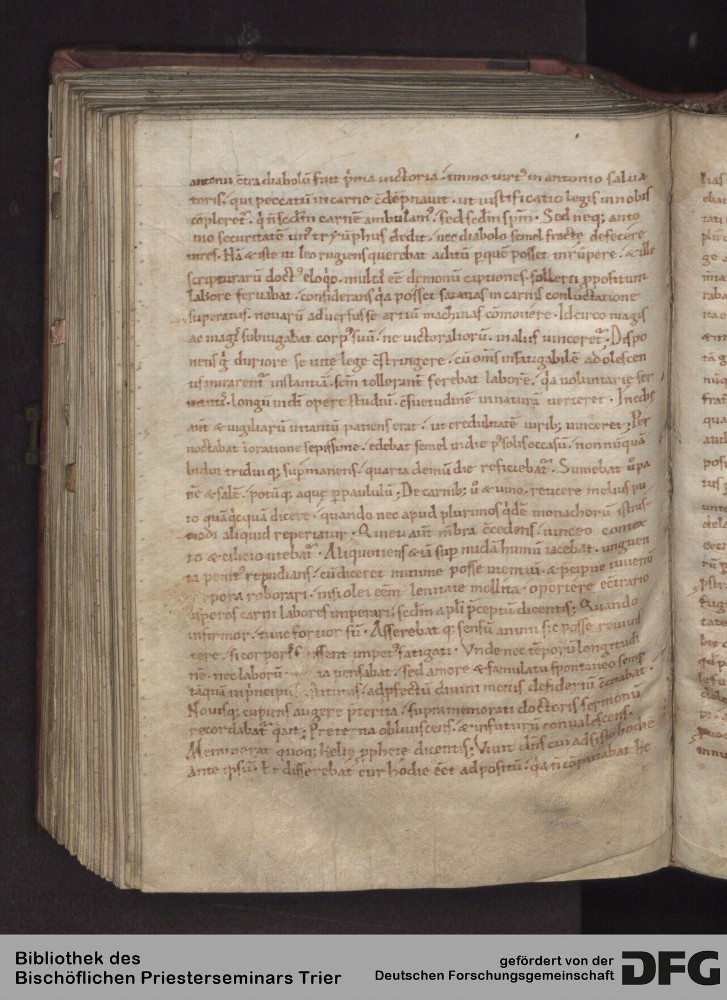 antonii c̄tra diabolū fuit p̍ma victoria, immo virtꝰ in antonio salua
toris, qui peccatū in carne c̄dēpnauit, ut iustificatio legis in nobis
c̄pleret̉, q̍ n̄ scd̄m carnē ambulam̉, sed scd̄m sp̄m. Sed neq; anto
nio securitatē un̉ tryūphus dedit, nec diabolo semel fracte defecere
uires. Nā & iste ut leo rugiens querebat aditū p quē posset inrūpere, & ille
scripturarū doct̉ eloq̍o, multas eē demonū captiones, sollerti p̱positum
labore seruabat, considerans q̍a posset satanas in carnis conluctatione
superatus, nouarū aduersus se artiū machinas cōmouere. Idcirco magis
ac mag̍ subiugabat corp̉ suū, ne uictor aliorū, in aliis uinceret̉. Dispo
nens g̍ duriore se uite lege c̄stringere, cū om̄s infatigabilē adolescen
tis mirarent̉ instantiā, sc̄m tollerant̉ ferebat laborē, q̍a uoluntarie ser
uitutis longū in dī opere studiū, c̄suetudinē in naturā uerteret. Inedie
aūt & uigiliarū in tantū patiens erat, ut credulitatē uirib; uinceret; Per
noctabat ī oratione sepissime, edebat semel in die p̱ solis occasū, nonnūquā
biduo triduoq; sup̱manens, quarta demū die reficiebat̉. Sumebat ū pa
nē & salē, potūq; aque p̱paululū; De carnib; ū & uino, reticere melius pu
to quā q̍cquā dicere, quando nec apud plurimos q̍dē monachorū istius
modi aliquid reperiatur. Quieti aūt mēbra c̄cedens, iunceo contex
to & cilicio utebat̉. Aliquotiens & iā sup nudā humū iacebat, unguen
ta penit̉ repudians, cū diceret minime posse iuuenū & p̄cipue iuuenū
corpora roborari, nisi olei eēnt lenitate mollita, oportere ec̄trario
asperos carni labores imperari, scd̄m apl̄i p̄ceptū dicentis; Quando
infirmor, tunc fortior sū. Asserebat q; sensū animi sic posse reuiui
scere, si corporis essent impet̉ fatigati. Unde nec tēporū longitudi
nē, nec laborū pensabat, sed amore & famulatu spontaneo semp
tāquā in principiis ad p̱fectū diuini metus desideriū c̄citabat.
Nouisq; cupiens augere p̄terita, supramemorati doctoris sermonū
recordabat̉ q̍ait; Preterita obliuiscens, & in futurū conualescens.
Meminerat quoq; helie p̱phete dicentis; Viuit dn̄s cui adsisto hodie
ante ipsū. Et disserebat cur hodie eēt adpositū, q̍a n̄ cōputabat he
Bibliothek des
Bischöflichen Priesterseminars Trier
gefördert von der
Deutschen Forschungsgemeinschaft
DFG